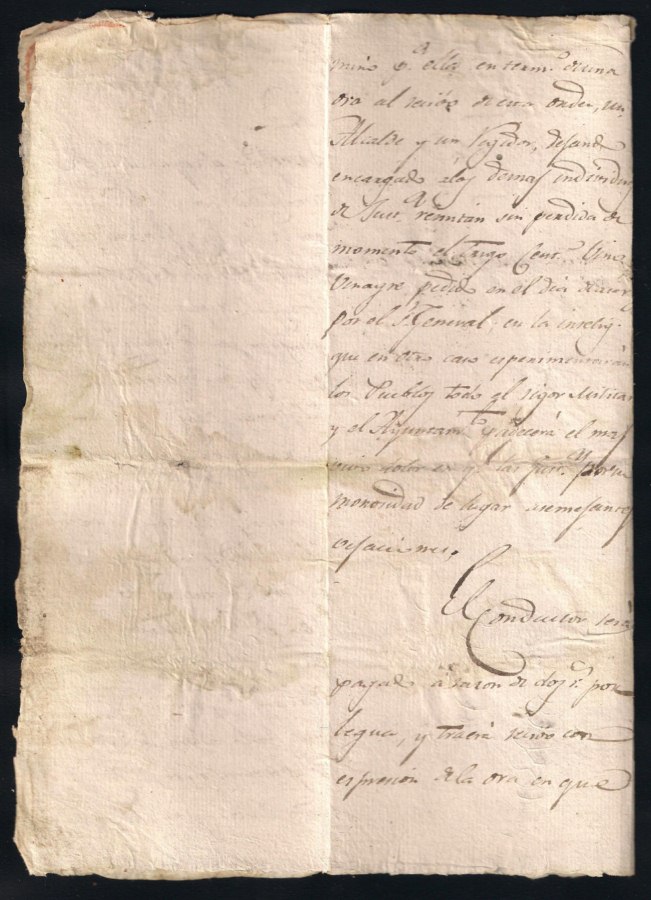 mino p.ª ella en term.º de una
ora al recivo de esta orden, un
Alcalde y un Regidor, dejando
encargado a los demas individuos
de Just.ª reunan sin perdida de
momento el trigo Cent.º Vino
Vinagre pedido en el dia de ayer
por el S.r General; en la intelig.ª
que en otro caso esperimentarán
los Pueblos todo el rigor Militar
y el Ayuntam.to padecerá el mas
vivo dolor en q.e las Just.as por su
morosidad de lugar a semejantes
vejaciones.
El Conductor será
pagado a razon de dos r.s por
legua, y traerá recivo con
espresion de la ora en que